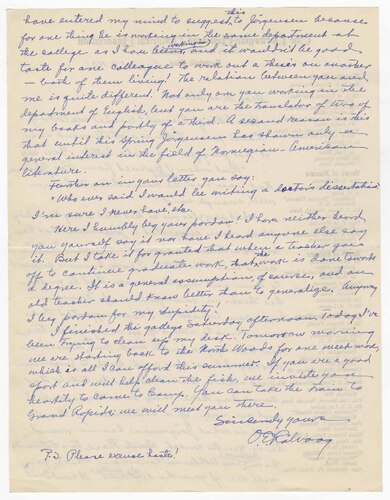 have entered my mind to suggest this to Jörgensen because
for one thing he is working in the same department at
the college as I have been working in, and it wouldn't be good
taste for one colleague to work out a thesis on another
— both of them living! The relation between you and
me is quite different. Not only are you working in the
department of English, but you are the translator of two of
my books and partly of a third. A second reason is this
that until this Spring Jörgensen has shown only a
general interest in the field of Norwegian-American
literature.
Farther on in your letter you say:
"Who ever said I would be writing a doctor's dissertation,
I'm sure I never have", etc.
Here I humbly beg your pardon! I have neither heard
you yourself say it nor have I heard anyone else say
it. But I take it for granted that when a teacher goes
off to continue graduate work, that the work is done towards
a degree. It is a general assumption, of course, and an
old teacher should know better than to generalize. Anyway
I beg pardon for my stupidity!
I finished the galleys Saturday afternoon. Today I've
been trying to clean up my desk. Tomorrow morning
we are starting back to the North Woods for one week more,
which is all I can afford this summer. If you are a good
sport and will help clean the fish, we invite you
heartily to come to Camp. You can take the train to
Grand Rapids; we will meet you there.
Sincerely yours
O. E. Rölvaag
P.S. Please excuse haste!